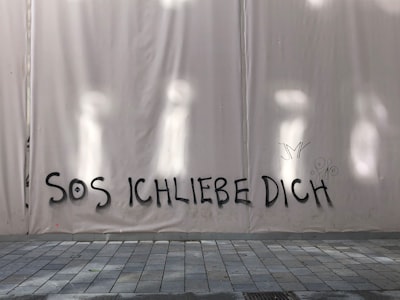 SOS ICHLIEBE DICH
JMK